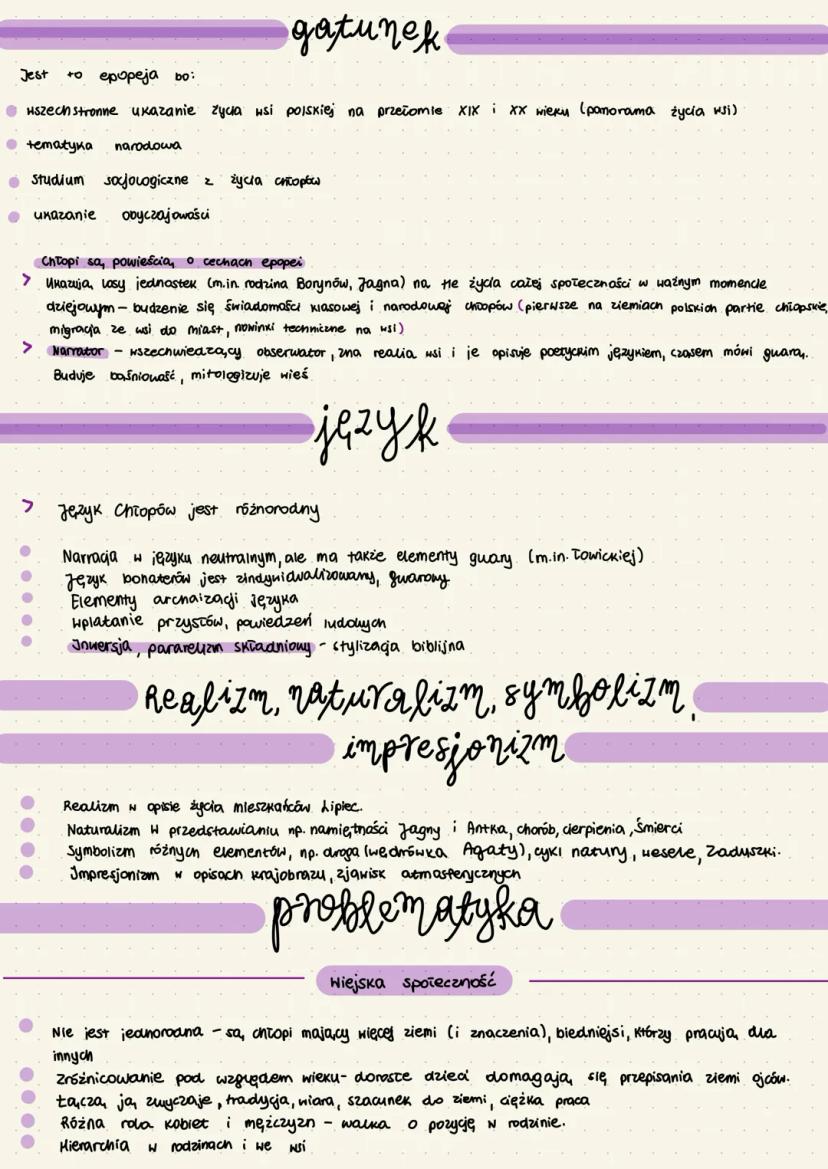 gatunek
Jest to epopeja bo:
wszechstronne ukazanie życia wsi polskiej na przełomie XIX i XX wieku (panorama życia wsi)
tematyka narodowa
studium socjologiczne z życia chłopów
ukazanie obyczajowości
Chłopi są powieścią o cechach epopei
> Ukazują losy jednostek (m.in. rodzina Borynów, Jagna) na tle życia całej społeczności w ważnym momencie
dziejowym – budzenie się świadomości klasowej i narodowej chłopów (pierwsze na ziemiach polskich partie chłopskie,
migracja ze wsi do miast, nowinki techniczne na wsi)
> Narrator – wszechwiedzący obserwator, zna realia wsi i je opisuje poetyckim językiem, czasem mówi gwarą.
Buduje baśniowość, mitologizuje wieś
język
> Język Chłopów jest różnorodny
Narracja w języku neutralnym, ale ma także elementy gwary (m.in. łowickiej)
Język bohaterów jest zindywidualizowany, gwarowy
Elementy archaizacji języka
Wplatanie przysłów, powiedzeń ludowych
Inwersja, pararelizm składniowy - stylizacja biblijna
Realizm, naturalizm, symbolizm,
impresjonizm
Realizm w opisie życia mieszkańców Lipiec.
Naturalizm w przedstawianiu np. namiętności Jagny i Antka, chorób, cierpienia, śmierci
Symbolizm różnych elementów, np. droga (wędrówka Agaty), cykl natury, wesele, Zaduszki.
Impresjonizm w opisach krajobrazu, zjawisk atmosferycznych
problematyka
Wiejska społeczność
Nie jest jednorodna – są chłopi mający więcej ziemi (i znaczenia), biedniejsi, którzy pracują dla
innych
Zróżnicowanie pod względem wieku - dorosłe dzieci domagają się przepisania ziemi ojców.
Łączą ją zwyczaje, tradycja, wiara, szacunek do ziemi, ciężka praca
Różna rola kobiet i mężczyzn – walka o pozycję w rodzinie.
Hierarchia w rodzinach i we wsi